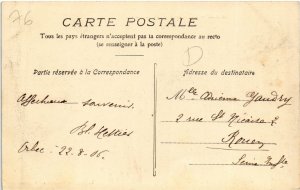 76
CARTE POSTALE
D
Tous les pays étrangers n'acceptent pas la correspondance au recto
(se renseigner à la poste)
Partie réservée à la Correspondance
Adresse du destinataire
Affectueux souvenir
Orbec - 22-8-06.
Mlle
2 rue St Nicaise 2
Rouen
Seine Inf